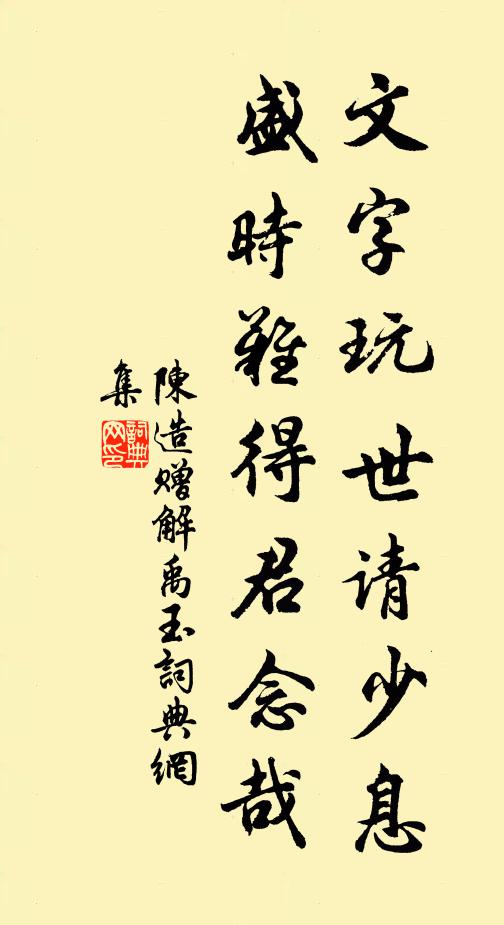 文字玩世请少息
盛時難得君念哉
陳造贈解禹玉詞典網
集
詞典网印